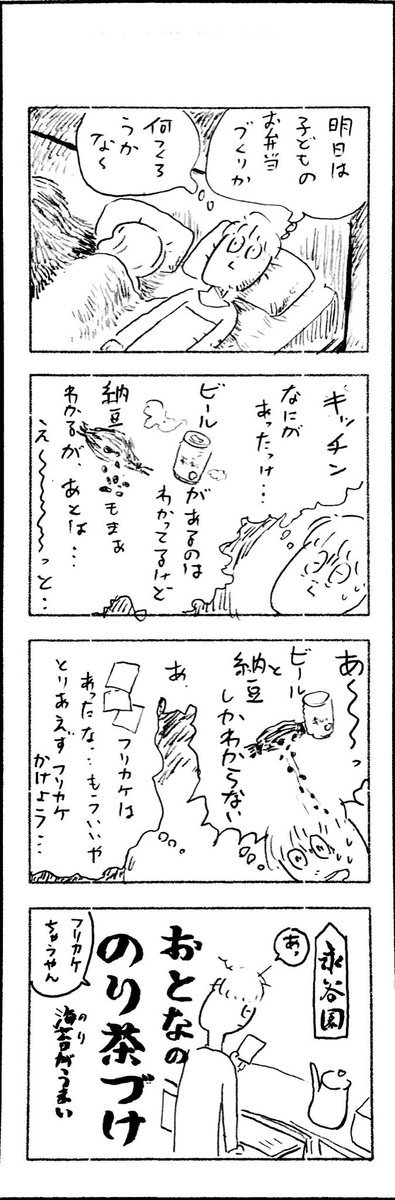 明日は
子どもの
お弁当
づくりか
何つくろ
うかな〜
キッチン
なにが
あったっけ・・・
ビールがあるのは
わかってるけど
納豆もまぁ
わかるが、あとは・・・
え〜〜〜〜〜っと・・・
あ〜〜〜〜っ
ビールと
納豆
しかわからない
あ、
フリカケは
あったな・・もういいや
とりあえずフリカケ
かけよう・・・
永谷園
あっ
おとなの
のり茶づけ
海苔がうまい
のり
フリカケ
ちゃうやん